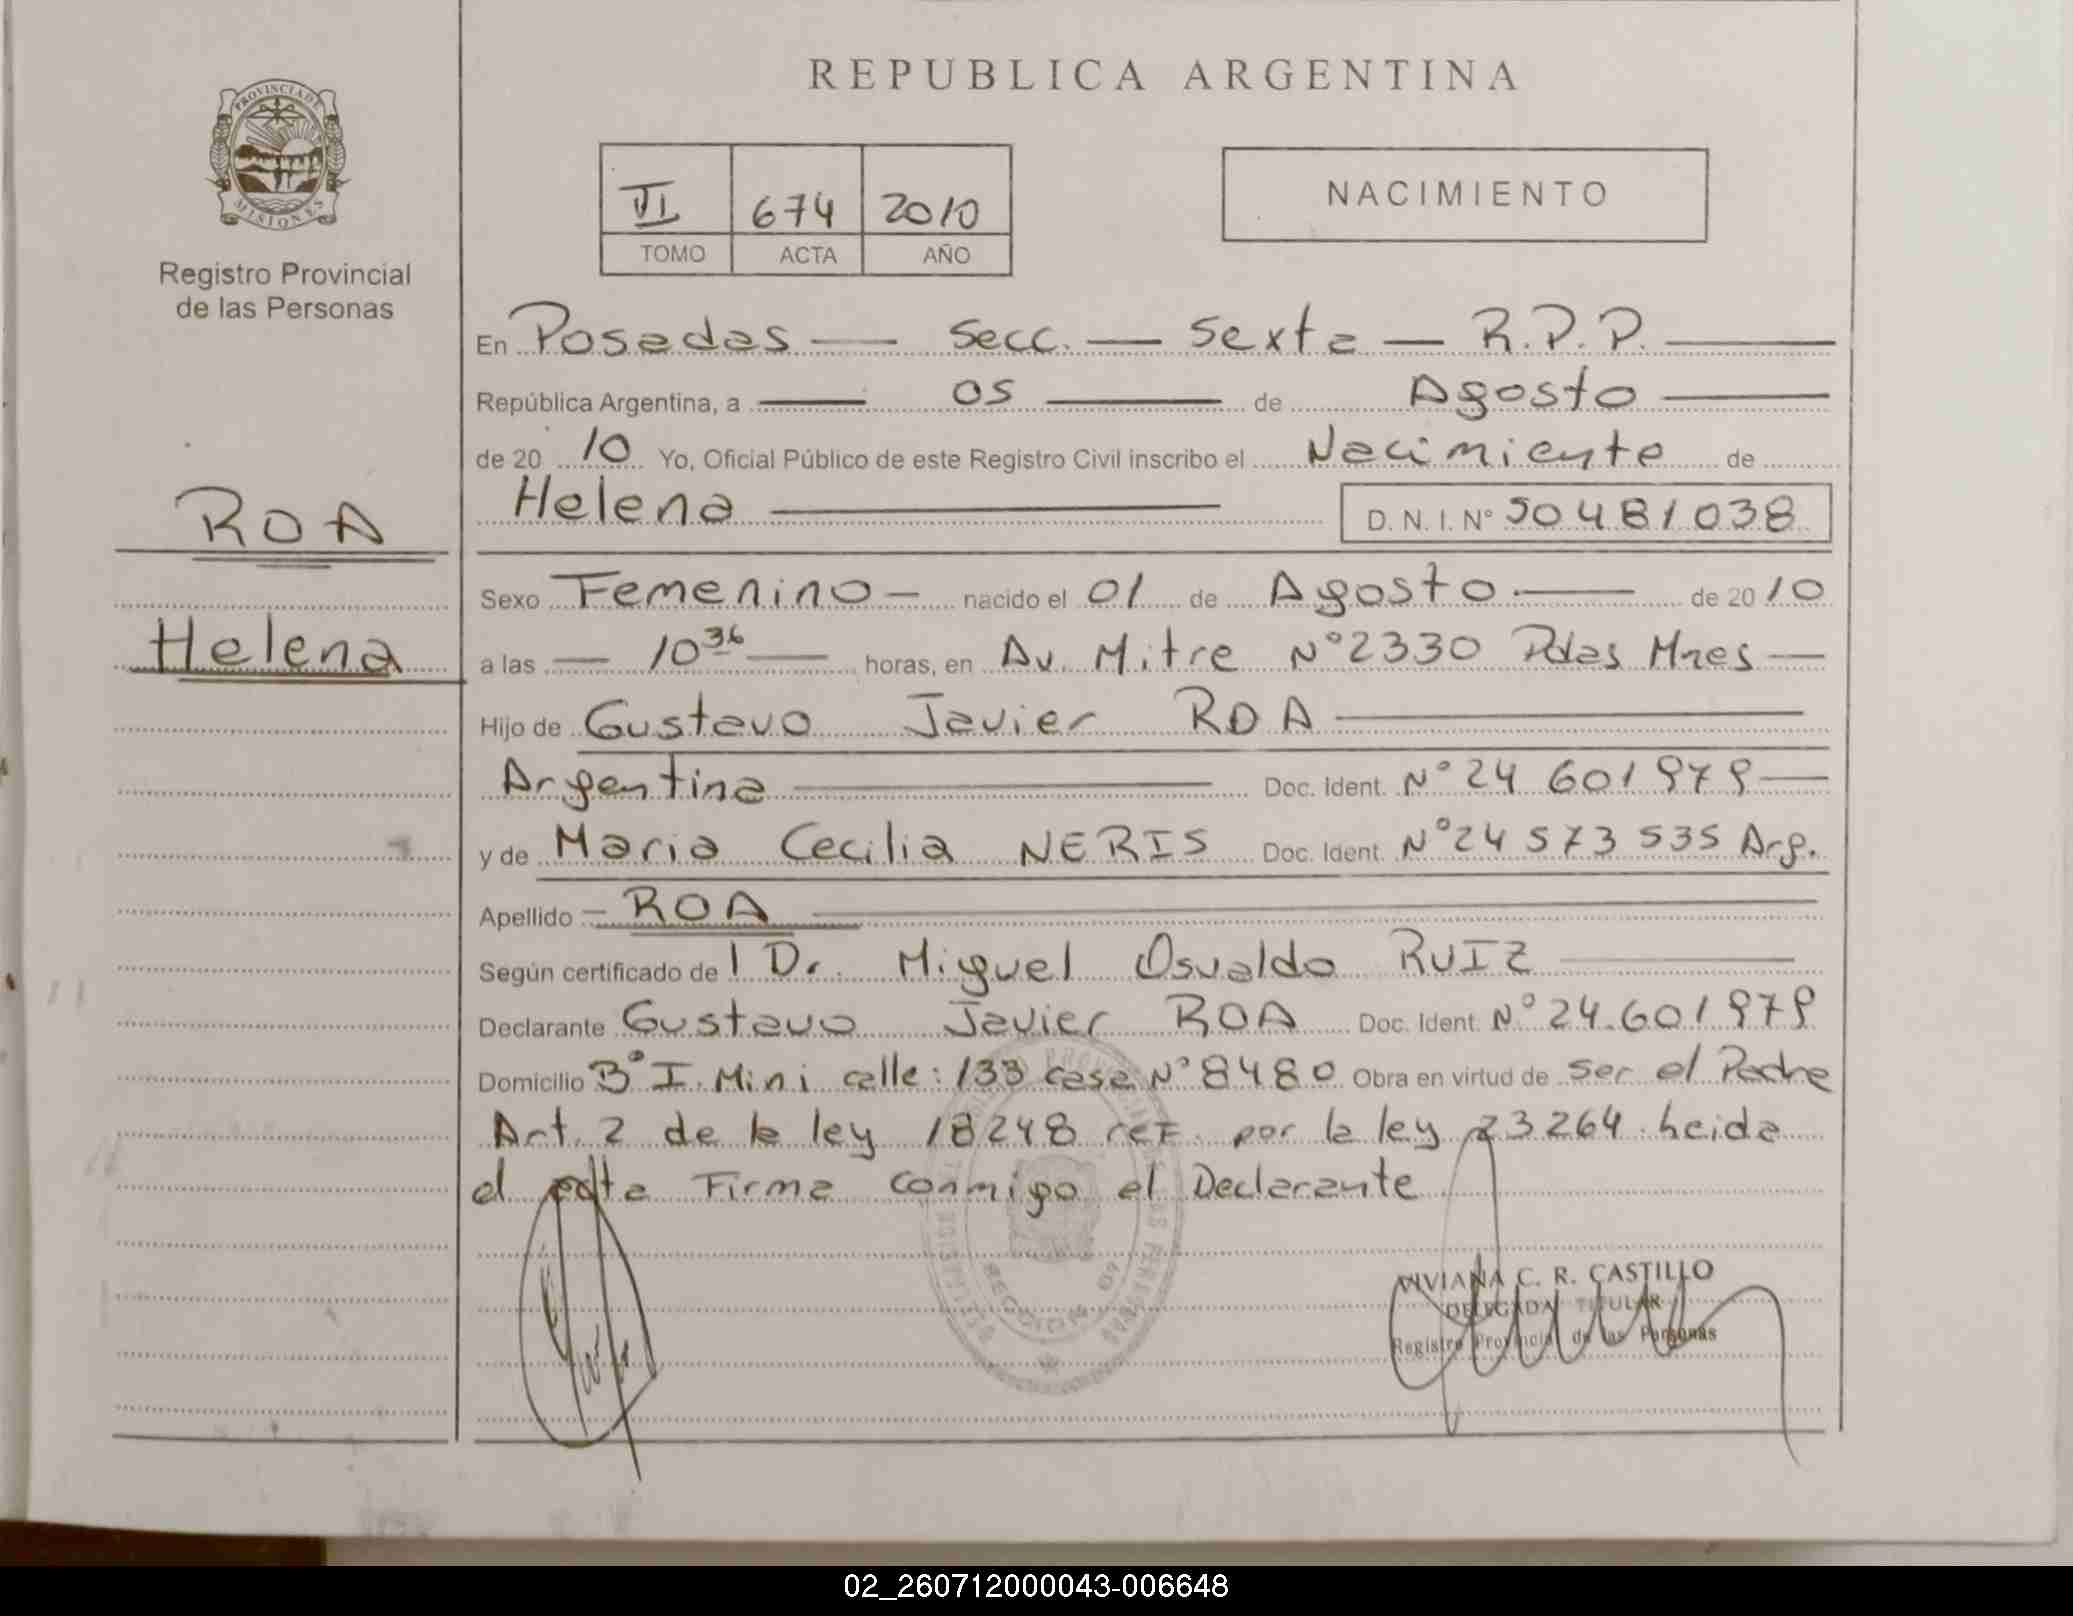 REPUBLICA ARGENTINA
PROVINCIA DE
MISIONES
Registro Provincial
de las Personas
VI 674 2010
TOMO ACTA AÑO
NACIMIENTO
En Posadas — Secc. — Sexta — R.P.P. —
República Argentina, a — 05 — de Agosto —
de 20 10 Yo, Oficial Público de este Registro Civil inscribo el Nacimiento de
Helena — D.N.I. Nº 50481038
ROA
Helena
Sexo Femenino — nacido el 01 de Agosto — de 20 10
a las — 10 36 — horas, en Av. Mitre Nº 2330 Pdas Mnes —
Hijo de Gustavo Javier ROA —
Argentina — Doc. Ident. Nº 24 601 979 —
y de Maria Cecilia NERIS Doc. Ident. Nº 24 573 535 Arg.
Apellido — ROA —
Según certificado de l Dr. Miguel Osvaldo RUIZ —
Declarante Gustavo Javier ROA Doc. Ident. Nº 24.601 979
Domicilio Bº I. Mini calle: 133 casa Nº 8480 Obra en virtud de ser el Padre
Art. 2 de la ley 18248 ref. por la ley 23264. leida
el acta Firma conmigo el Declarante
VIVIANA C. R. CASTILLO
DELEGADA TITULAR
Registro Provincial de las Personas
02_260712000043-006648